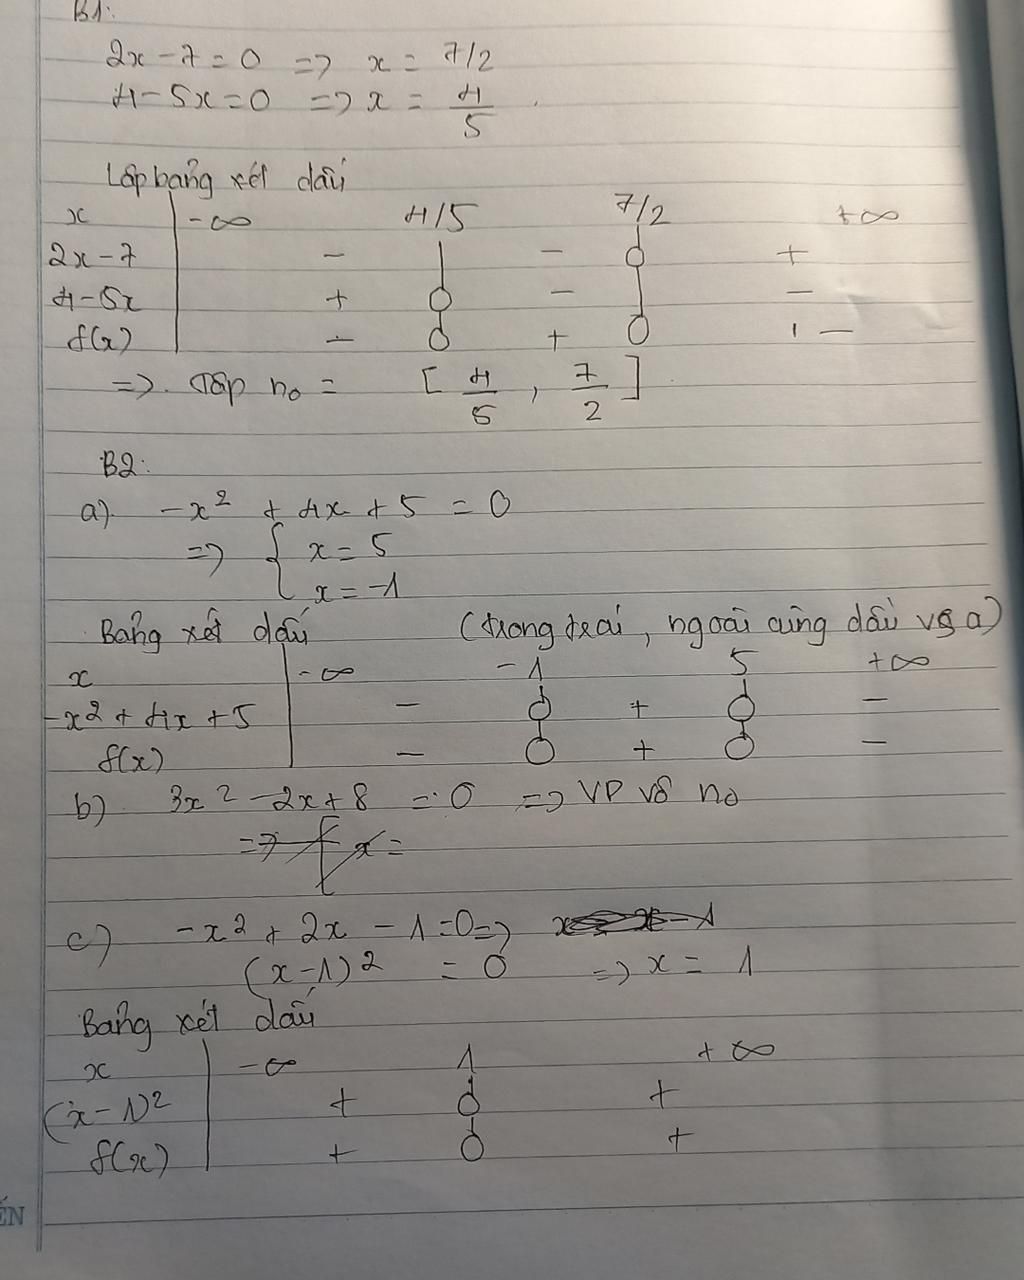 B1:
2x - 7 = 0 => x = 7/2
4 - 5x = 0 => x = 4/5
Lập bảng xét dấu
x -∞ 4/5 7/2 +∞
2x - 7 - | - 0 +
4 - 5x + 0 - | -
f(x) - 0 + 0 -
=> Tập no = [4/5, 7/2]
B2:
a) -x² + 4x + 5 = 0
=> { x = 5
x = -1
Bảng xét dấu (trong trái, ngoài cùng dấu vs a)
x -∞ -1 5 +∞
-x² + 4x + 5 - 0 + 0 -
f(x) - 0 + 0 -
b) 3x² - 2x + 8 = 0 => VP vô no
=> [ x =
c) -x² + 2x - 1 = 0 =>
(x - 1)² = 0 => x = 1
Bảng xét dấu
x -∞ 1 +∞
(x - 1)² + 0 +
f(x) + 0 +
ẾN